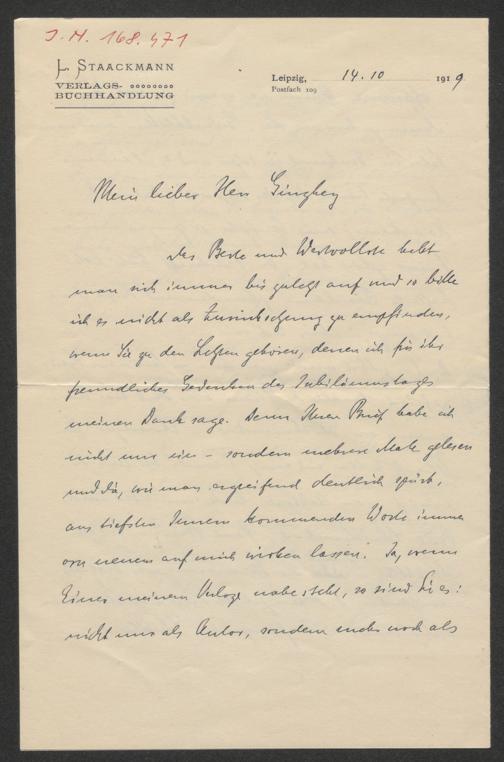 J.N. 168.471
L. STAACKMANN
VERLAGS-
BUCHHANDLUNG
Leipzig, 14.10 1919
Postfach 109
Mein lieber Herr Ginzkey
das Beste und Wertvollste hebt
man sich immer bis zuletzt auf und so bitte
ich es nicht als Zurücksetzung zu empfinden,
wenn Sie zu den Letzten gehören, denen ich für ihr
freundliches Gedenken des Jubiläumstages
meinen Dank sage. Denn Ihren Brief habe ich
nicht nur ein - sondern mehrere Male gelesen
und die, wie man ergreifend deutlich spürt,
aus tiefstem Innern kommenden Worte immer
von neuem auf mich wirken lassen. Ja, wenn
Einer meinem Verlage nahe steht, so sind Sie es:
nicht nur als Autor, sondern mehr noch als